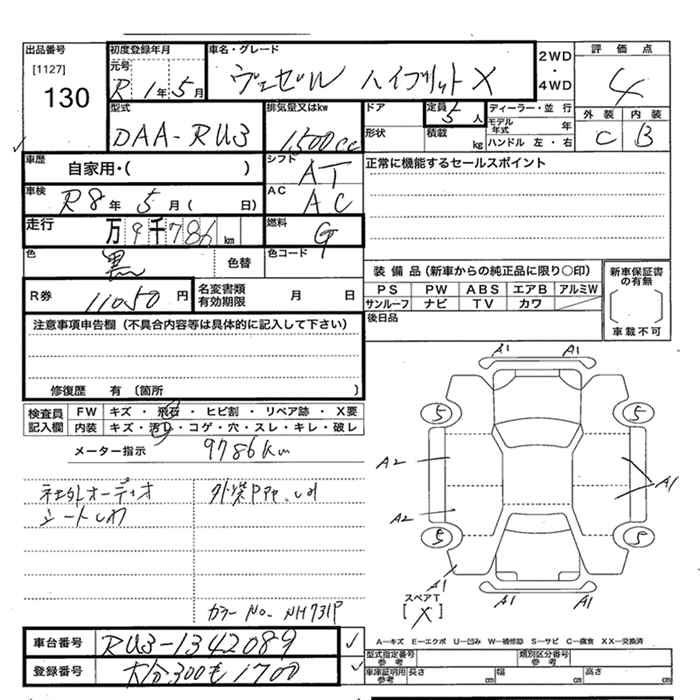 出品番号
[1127]
130
初度登録年月
元号
R 1年 5月
車名・グレード
ヴェゼル ハイブリット X
2WD
・
4WD
評価点
4
外装 内装
C B
型式
DAA-RU3
排気量又はkw
1500cc
ドア
形状
定員
5人
積載
kg
ディーラー・並 行
モデル年式 年
ハンドル 左・右
車歴
自家用・( )
シフト
AT
正常に機能するセールスポイント
車検
R8年 5月( 日)
AC
AC
走行
万 9千786 km
燃料
G
色
黒
色替
色コード
装 備 品(新車からの純正品に限り○印)
PS PW ABS エアB アルミW
サンルーフ ナビ TV カワ
新車保証書の有無
車載不可
R券
11050円
名変書類有効期限 月 日
後日品
注意事項申告欄(不具合内容等は具体的に記入して下さい)
修復歴 有〔箇所 〕
検査員記入欄
FW キズ・飛石・ヒビ割・リペア跡・X要
内装 キズ・汚レ・コゲ・穴・スレ・キレ・破レ
メーター指示 9786km
社外オーディオ
シートしわ
カラーNo. NH731P
A1 A1
5 5
A2
A1
A2
5 5
A1
A1 A1
スペアT
[X]
車台番号 RU3-1342089
登録番号 大分300も1700
A―キズ E―エクボ U―凹み W―補修跡 S―サビ C―腐食 XX―交換済
型式指定番号参考
類別区分番号参考
車庫証明用参考 長さ cm 幅 cm 高さ cm